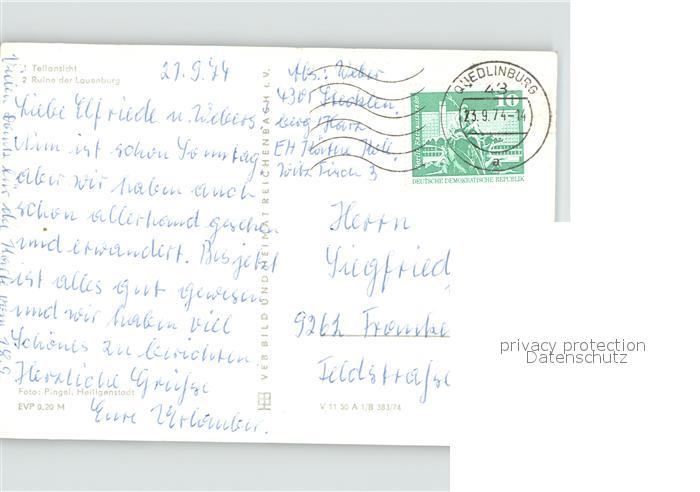 1 Teilansicht
2 Ruine der Lauenburg
21.9.74
Liebe Elfriede u. Webers
Nun ist schon Sonntag
aber wir haben auch
schon allerhand gesehen
und erwandert. Bis jetzt
ist alles gut gewesen
und wir haben viel
Schönes zu berichten
Herzliche Grüße
Eure Urlauber.
Foto: Pingel, Heiligenstadt
EVP 0,20 M
VEB BILD UND HEIMAT REICHENBACH I. V.
V 11 50 A 1/B 383/74
Abs.: Weber
4301 Stecklen
berg Harz
QUEDLINBURG
43
23.9.74-14
a
10
DEUTSCHE DEMOKRATISCHE REPUBLIK
Herrn
Siegfried
9262 Franke
Feldstraße
privacy protection
Datenschutz